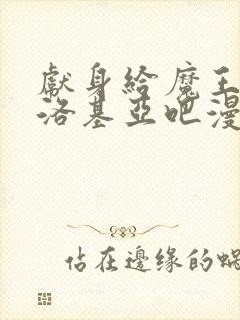 獻身給魔王
洛基亞吧漫
佔在邊缘的蝸